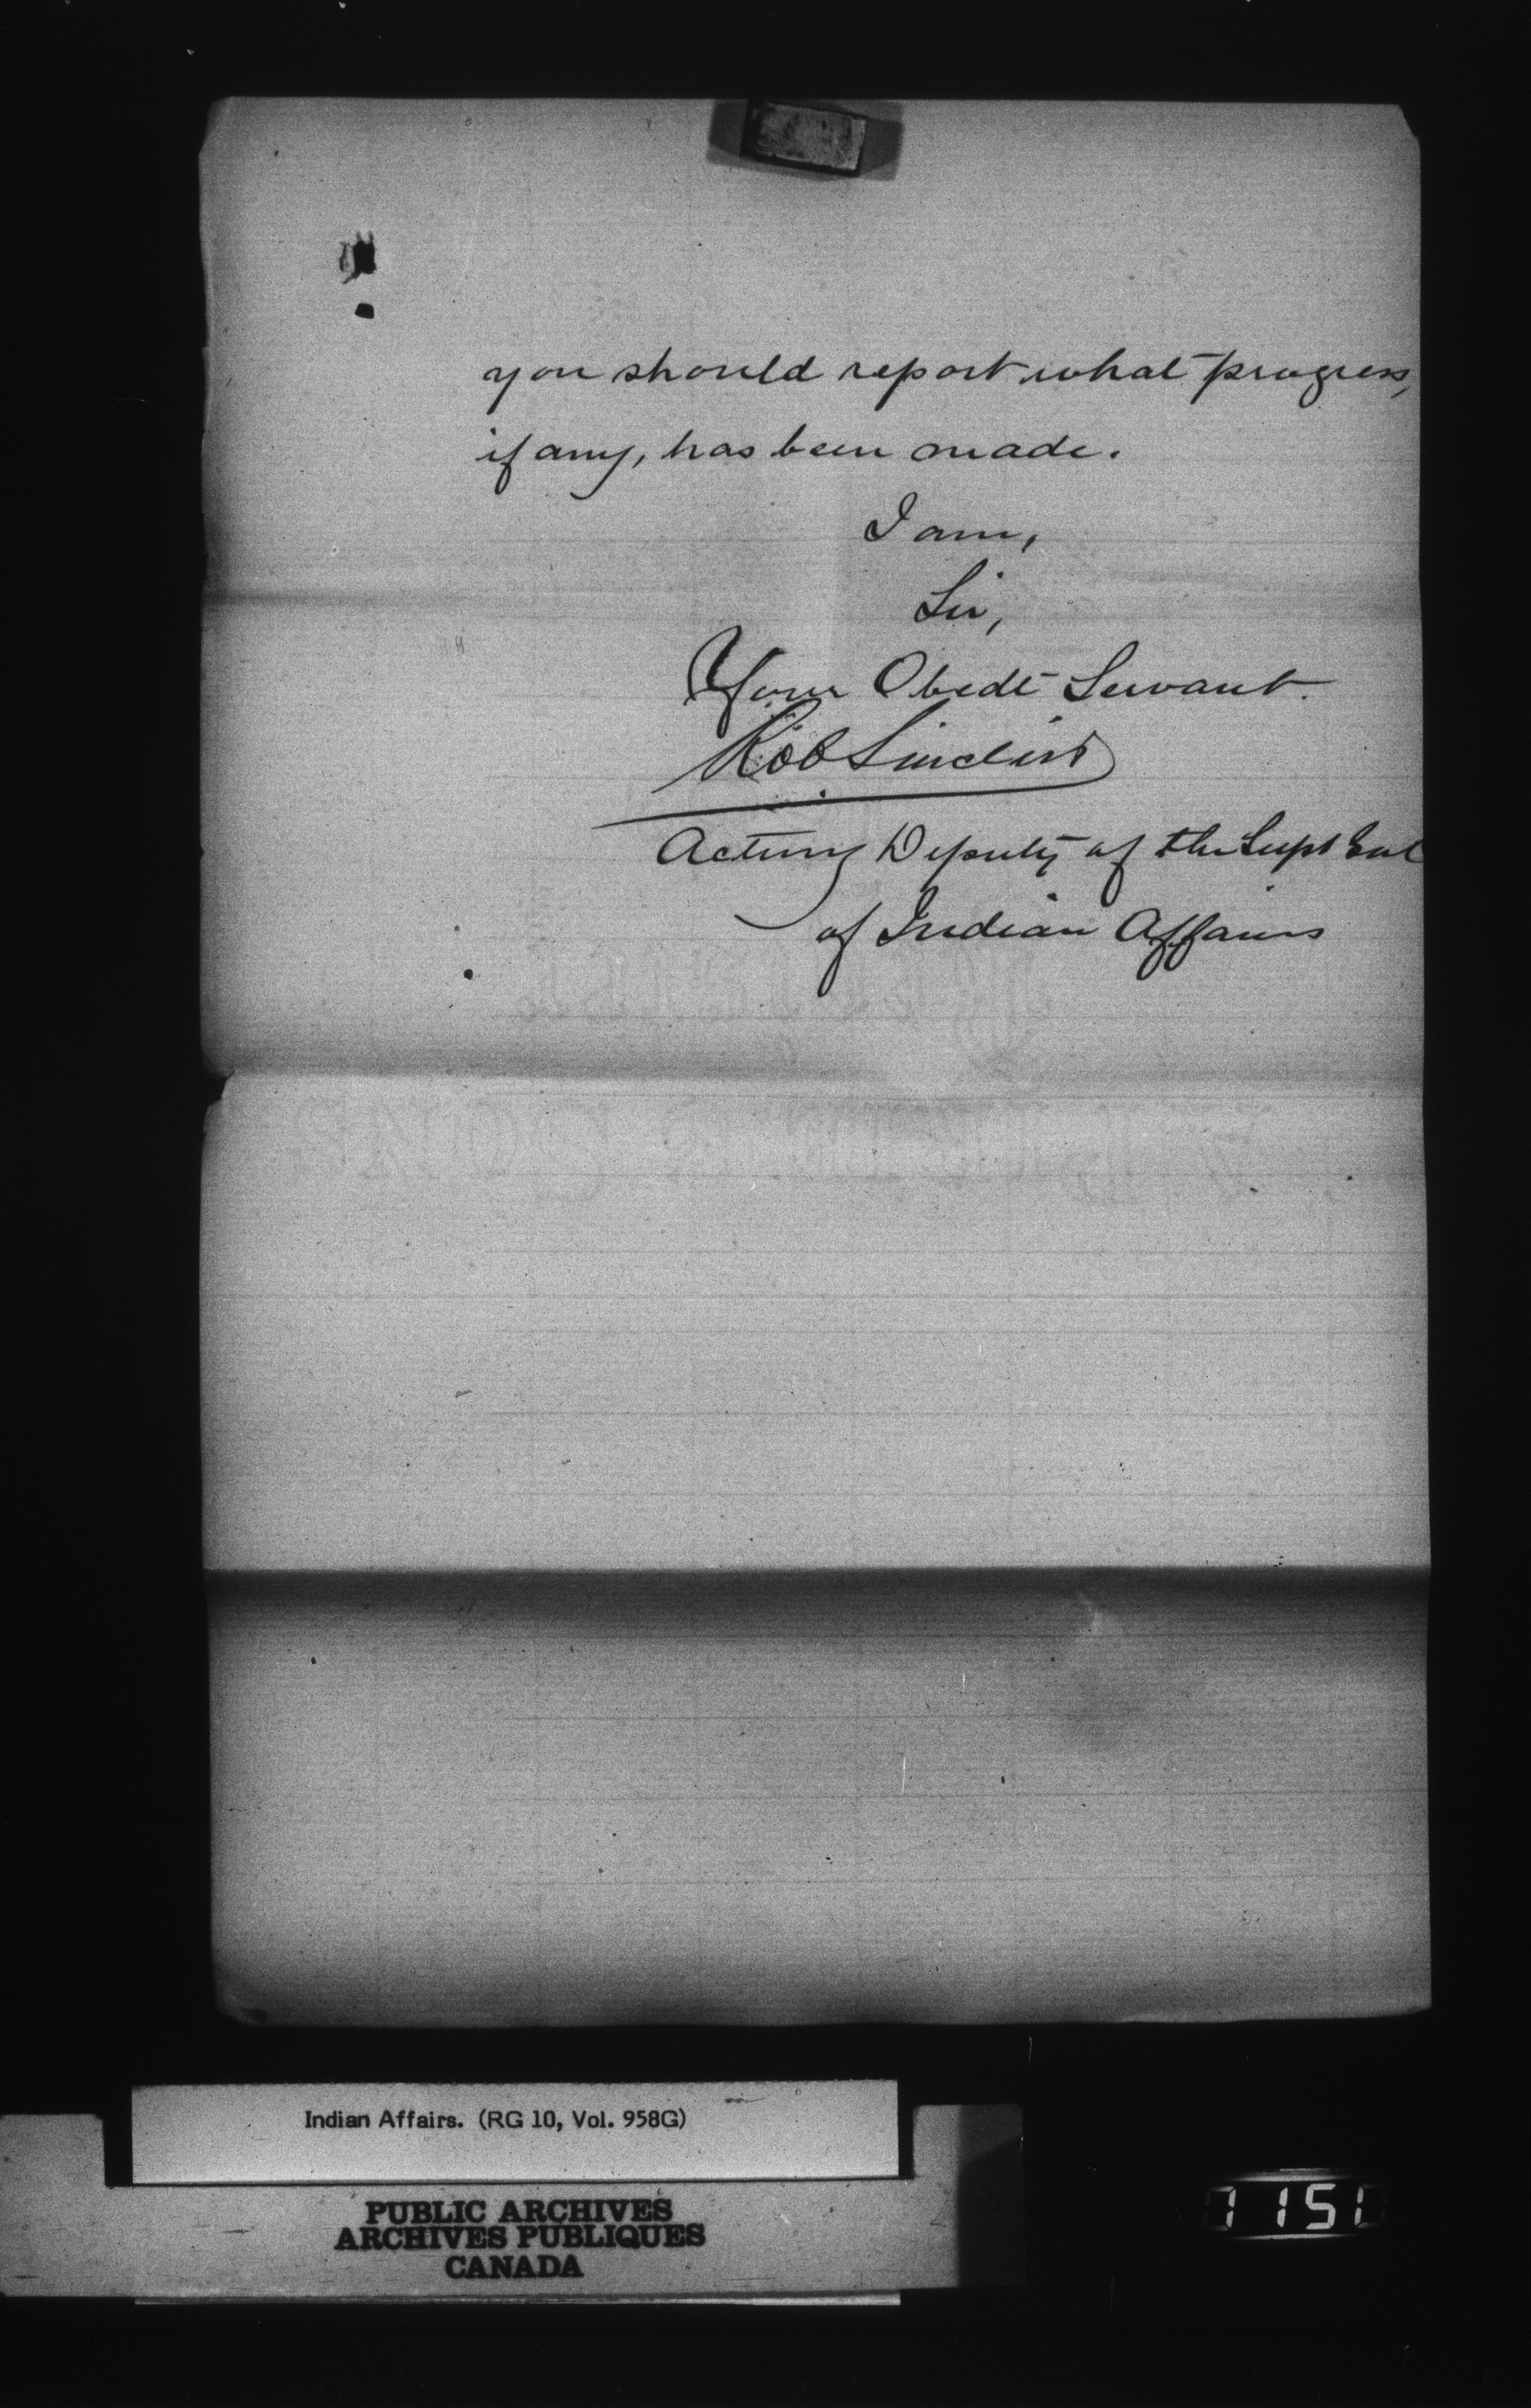 you should report what progress,
if any, has been made.
I am,
Sir,
Your Obedt Servant.
Rob Sinclair
Acting Deputy of the Supt Genl
of Indian Affairs
Indian Affairs. (RG 10, Vol. 958G)
PUBLIC ARCHIVES
ARCHIVES PUBLIQUES
CANADA
1151